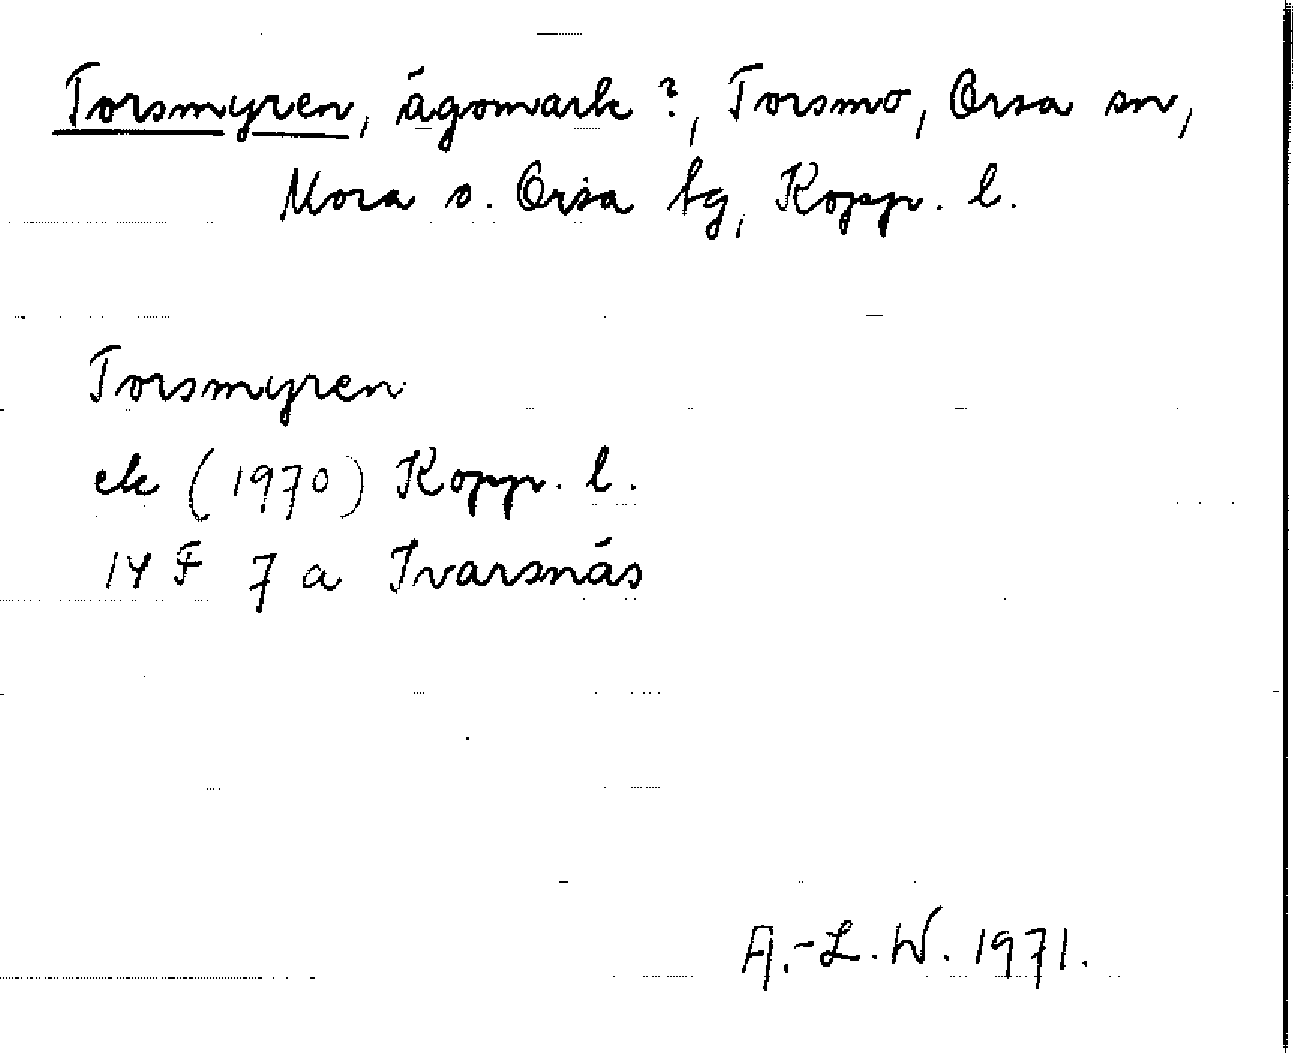 Torsmyren, ägomark ?, Torsmo, Orsa sn,
Mora o. Orsa tg, Kopp. l.
Torsmyren
ek (1970) Kopp. l.
14 F 7 a Ivarsnäs
A.-L. W. 1971.